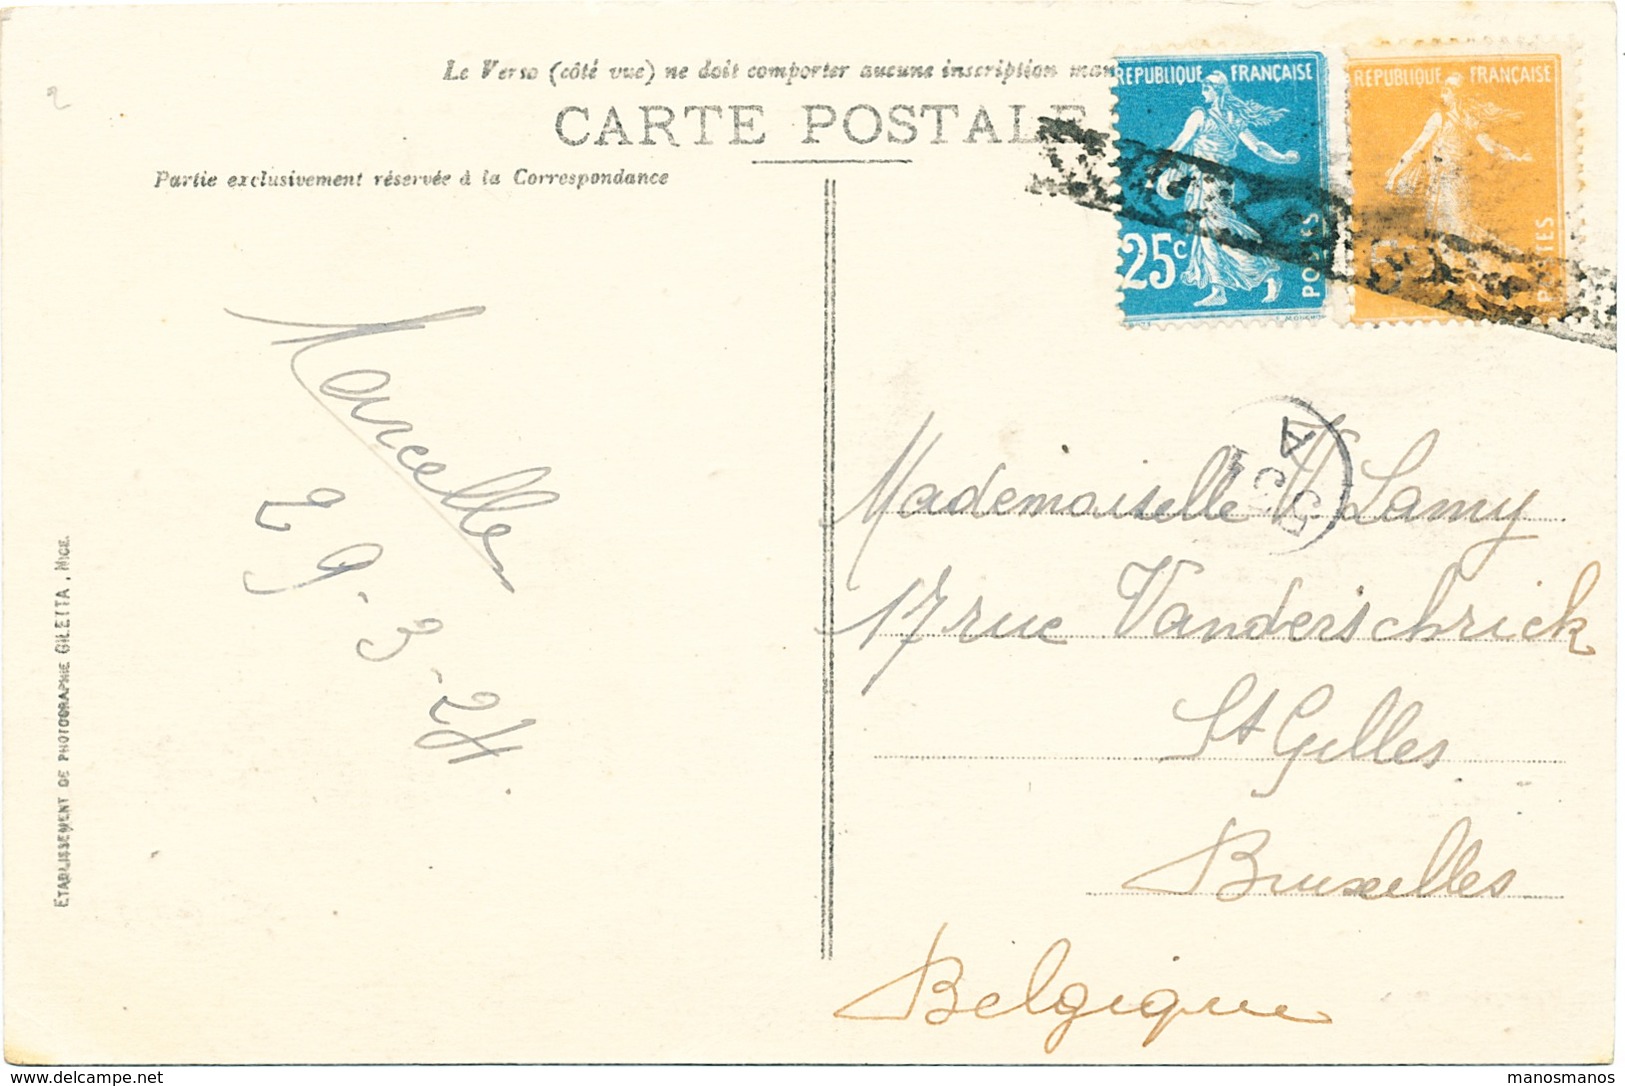 Le Verso (côté vue) ne doit comporter aucune inscription man
CARTE POSTALE
Partie exclusivement réservée à la Correspondance
REPUBLIQUE FRANÇAISE
25c
POSTES
REPUBLIQUE FRANÇAISE
POSTES
Marcelle
29-3-24.
Mademoiselle Lamy
17 rue Vanderschrick
St Gilles
Bruxelles
Belgique
ETABLISSEMENT DE PHOTOGRAPHIE GILETTA, NICE.
manosmanos